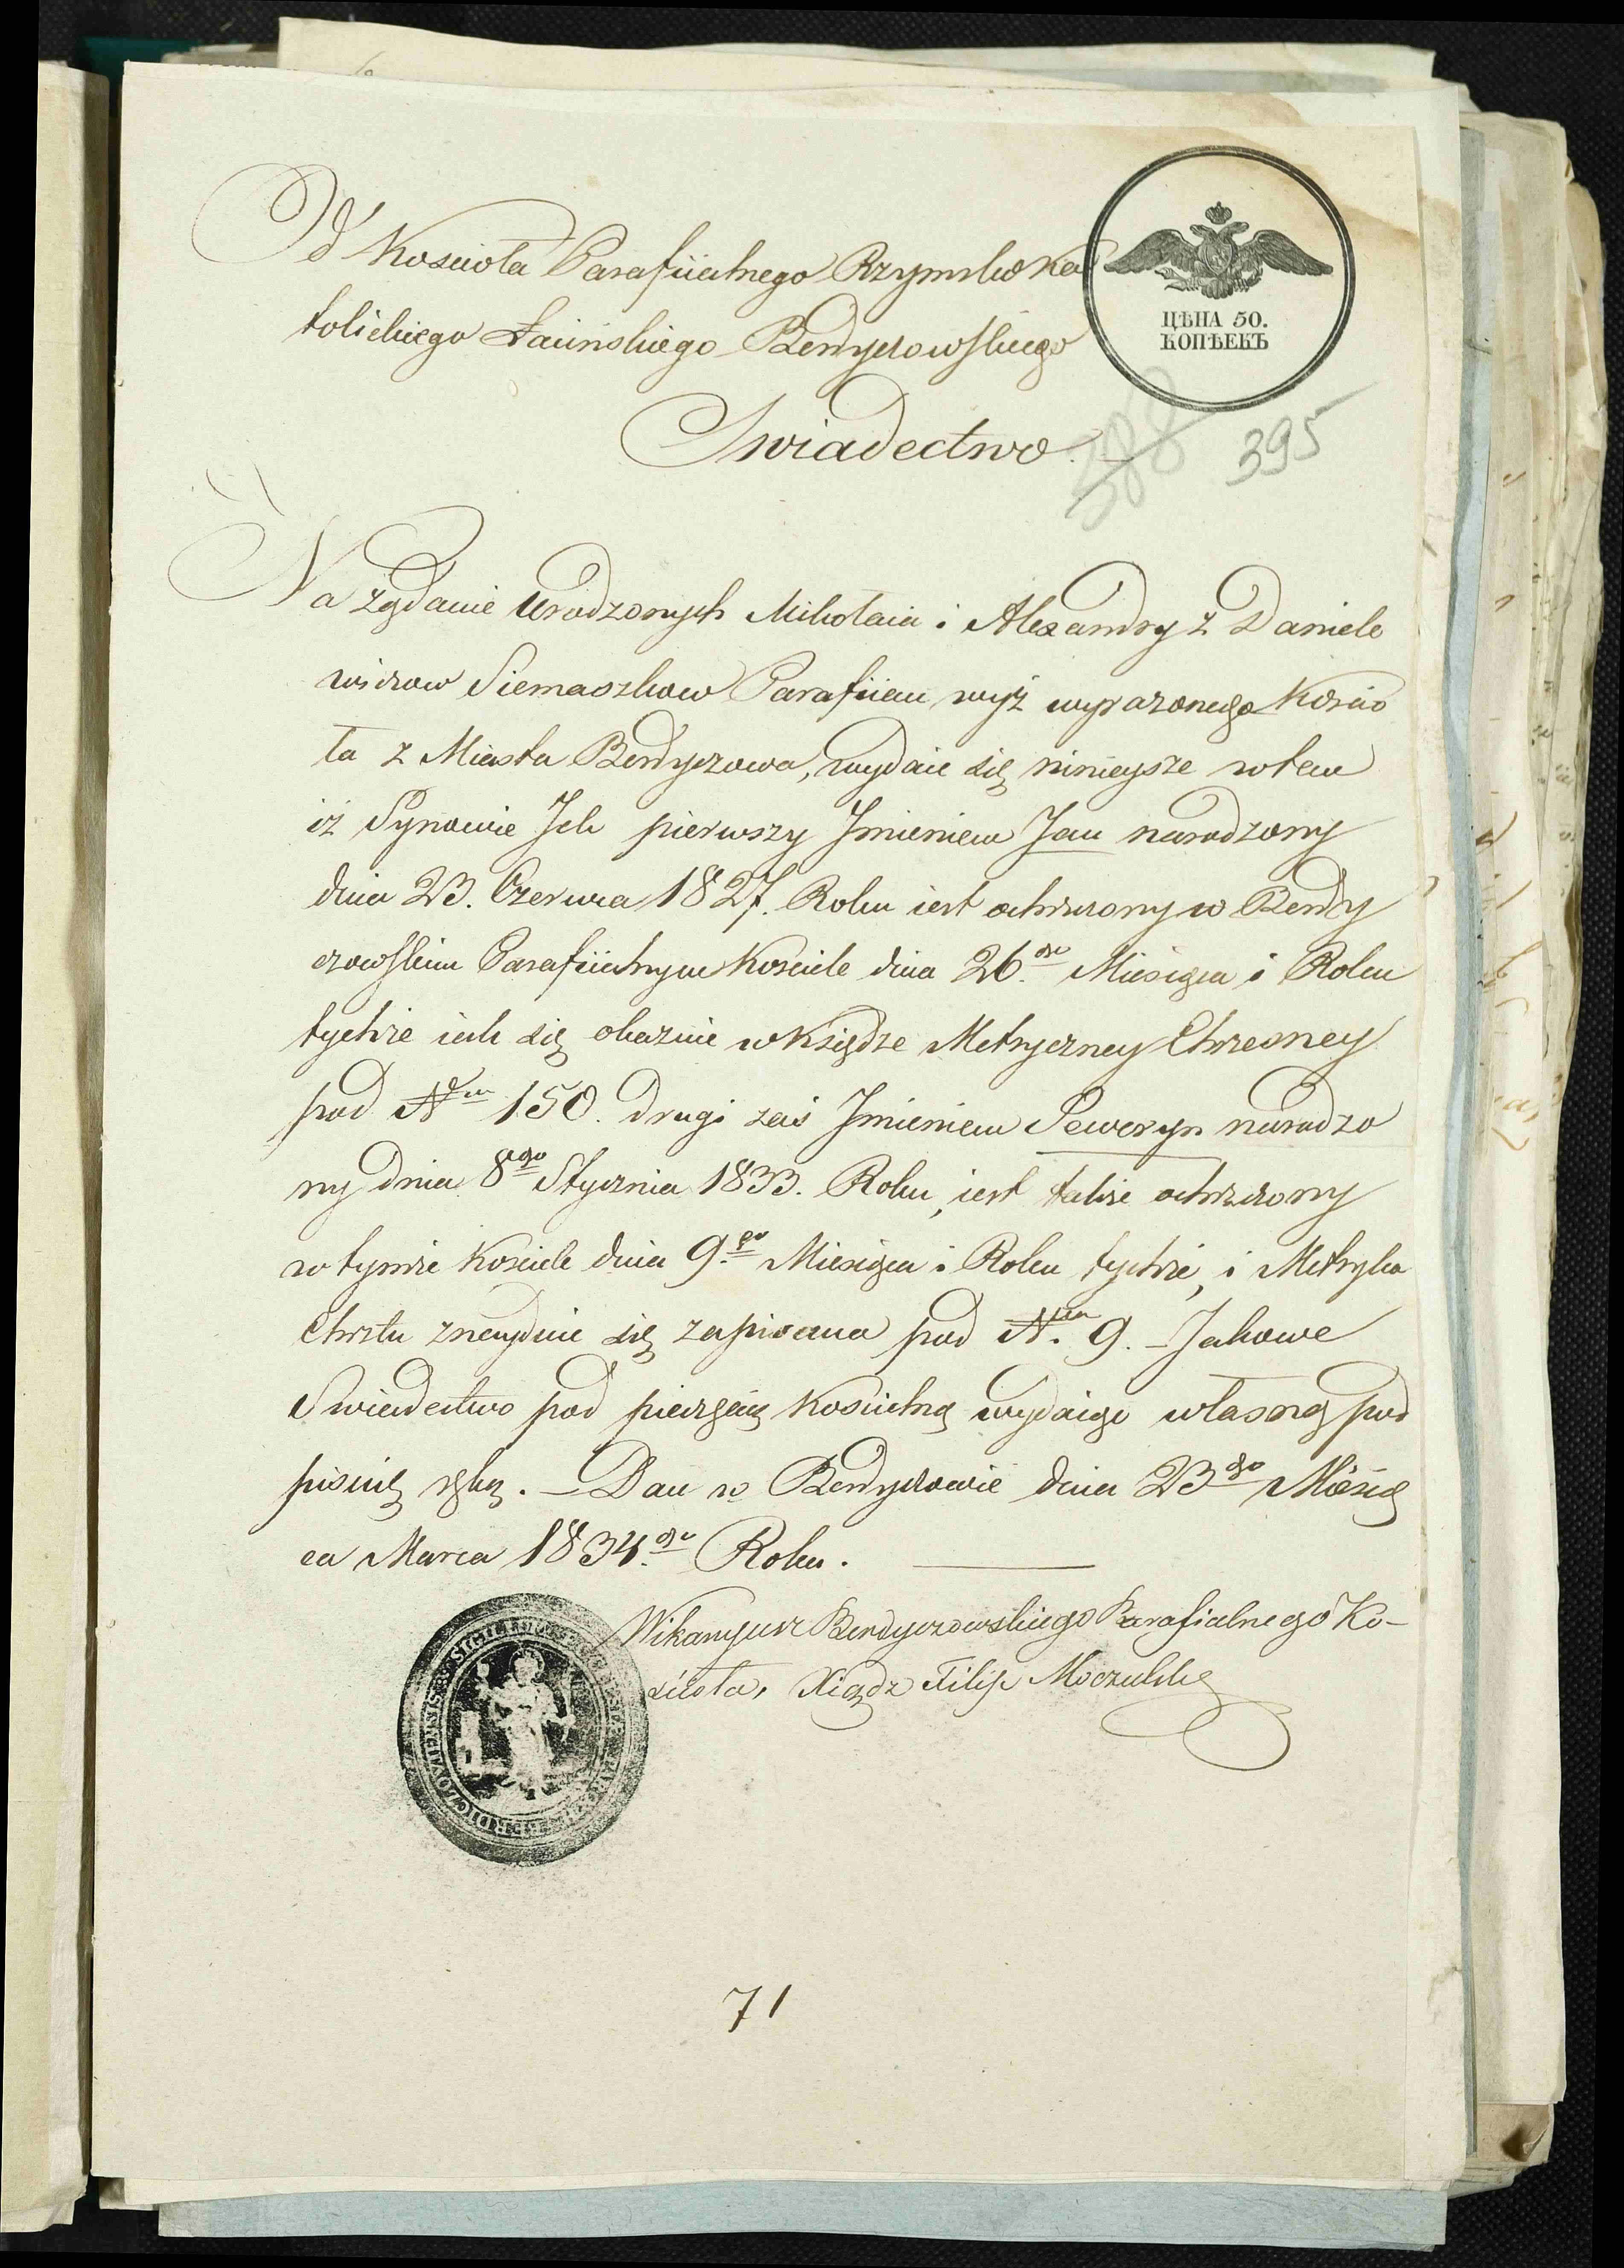 Od Kościoła Parafiialnego Rzymsko Ka
tolickiego Łacińskiego Berdyczowskiego
Swiadectwo. —
ЦѢНА 50.
КОПѢЕКЪ
388
395
Na żądanie Urodzonych Mikołaia i Alexandry z Daniele
wiczow Siemaszkow Parafiian wyż wyrażonego Kościo
ła z Miasta Berdyczowa, wydaie się ninieysze w tem
iż Synowie Ich pierwszy Imieniem Jan narodzony
dnia 23. Czerwca 1827. Roku iest ochrzczony w Berdy
czowskim Parafiialnym Kościele dnia 26.go Miesiąca i Roku
tychże iak się okazuie w Księdze Metryczney Chrzesney
pod Nm 150. drugi zaś Imieniem Seweryn narodzo
ny dnia 8go Stycznia 1833. Roku, iest także ochrzczony
w tymże Kościele dnia 9.go Miesiąca i Roku tychże, i Metryka
Chrztu znayduie się zapisana pod N.m 9. – Jakowe
Swiadectwo pod pieczęcią Kościelną wydaiąc własną pod
pisuię ręką. – Dan w Berdyczowie dnia 23go Miesią
ca Marca 1834.go Roku.
Wikaryusz Berdyczowskiego Parafialnego Ko-
ścioła, Xiądz Filip Moczulski
71